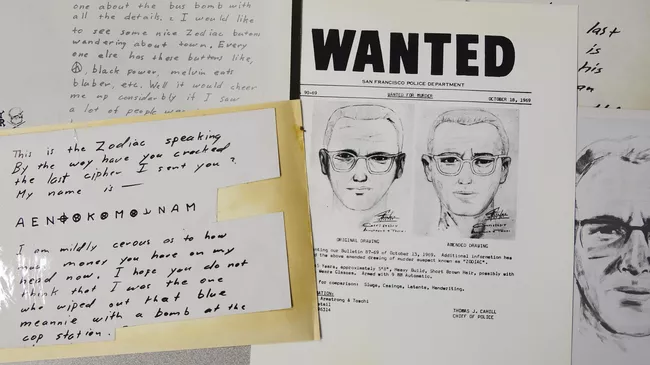 one about the bus bomb with
all the details. I would like
to see some nice Zodiac butons
wandering about town. Every
one else has these buttons like,
☮, black power, melvin eats
blaber, etc. Well it would cheer
me up considerably if I saw
a lot of people
This is the Zodiac speaking
By the way have you cracked
the last cipher I sent you ?
My name is —
A E N ⊕ ⊗ K ⊗ M ⊗ ⅃ N A M
I am mildly cerous as to how
much money you have on my
head now. I hope you do not
think that I was the one
who wiped out that blue
meannie with a bomb at the
cop station.
WANTED
SAN FRANCISCO POLICE DEPARTMENT
90-69 WANTED FOR MURDER OCTOBER 18, 1969
ORIGINAL DRAWING AMENDED DRAWING
our Bulletin 87-69 of October 13, 1969. Additional information has
the above amended drawing of murder suspect known as "ZODIAC".
Years, approximately 5'8", Heavy Build, Short Brown Hair, possibly with
Wears Glasses. Armed with 9 MM Automatic.
for comparison: Slugs, Casings, Latents, Handwriting.
Armstrong & Toschi
THOMAS J. CAHILL
CHIEF OF POLICE
last
is
his